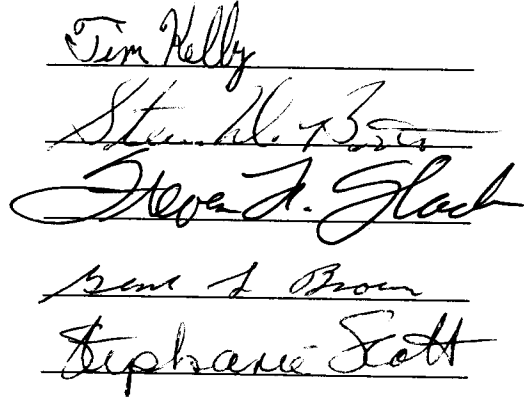 Tim Kelly
Steven
Steven H. Slack
Gene L Brown
Stephanie Scott